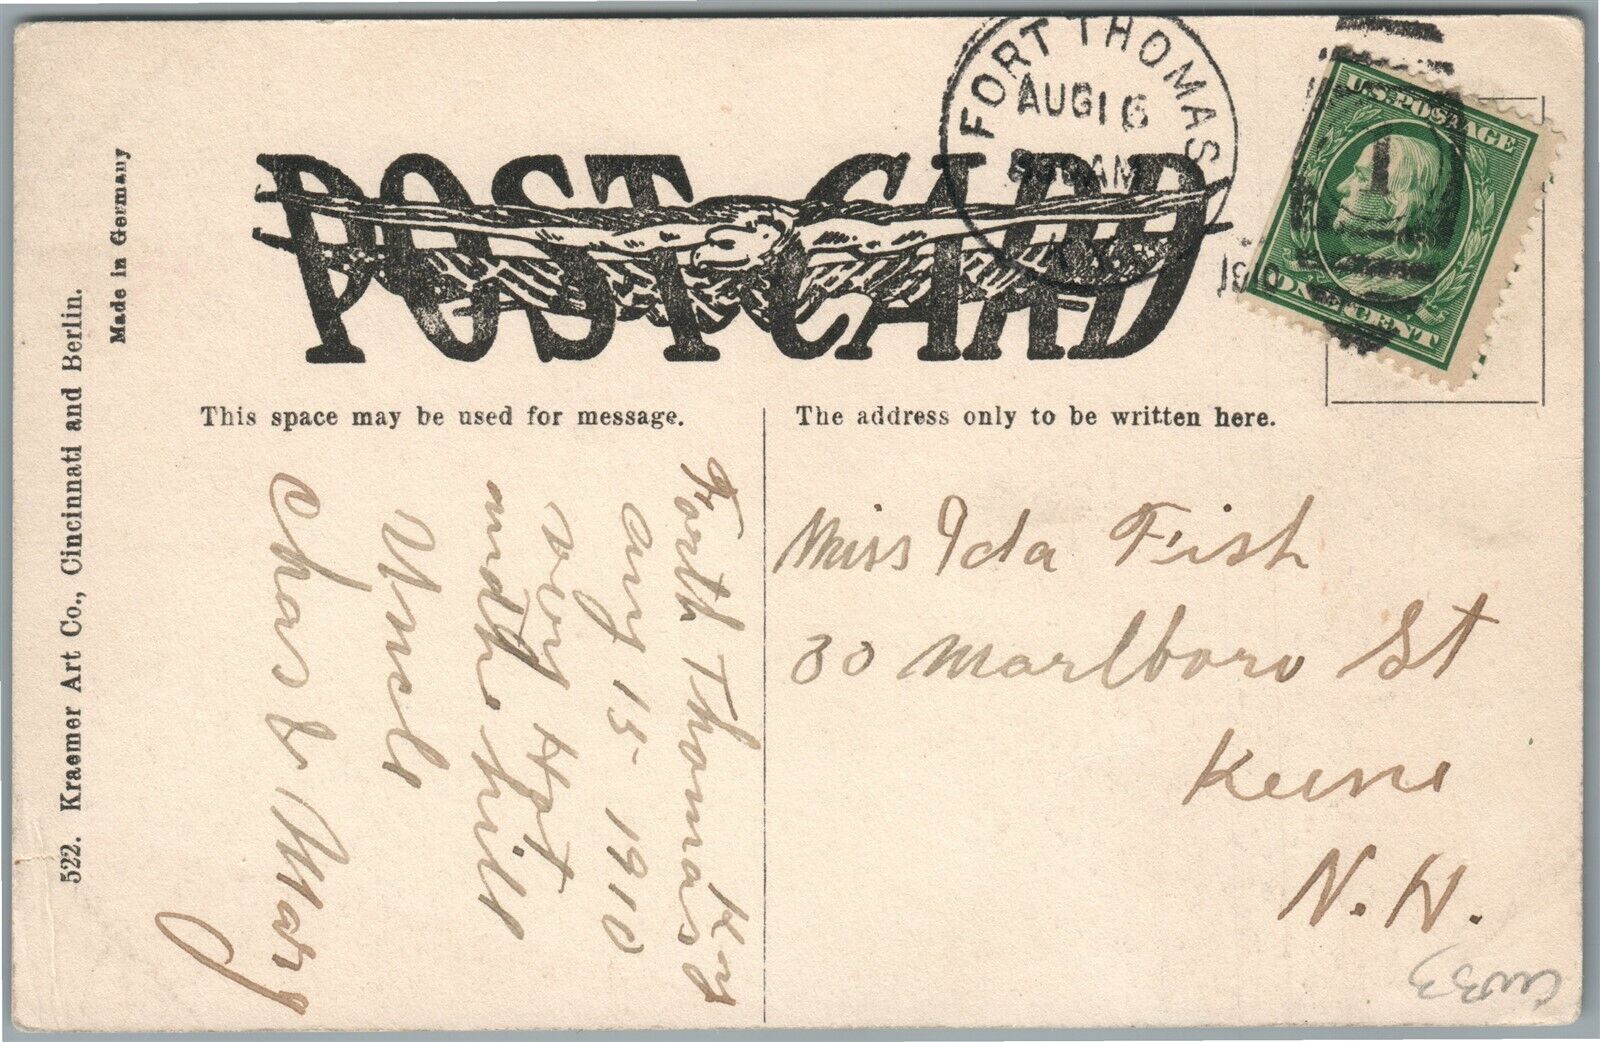 POST CARD
FORT THOMAS
AUG 16
AM
KY.
1910
U.S. POSTAGE
ONE CENT
This space may be used for message.
The address only to be written here.
Forth Thomas Ky
Aug 15- 1910
very Hot
and the hill
Uncle
Chas & Mary
Miss Ida Fish
30 Marlboro St
Keene
N.H.
522. Kraemer Art Co., Cincinnati and Berlin.
Made in Germany